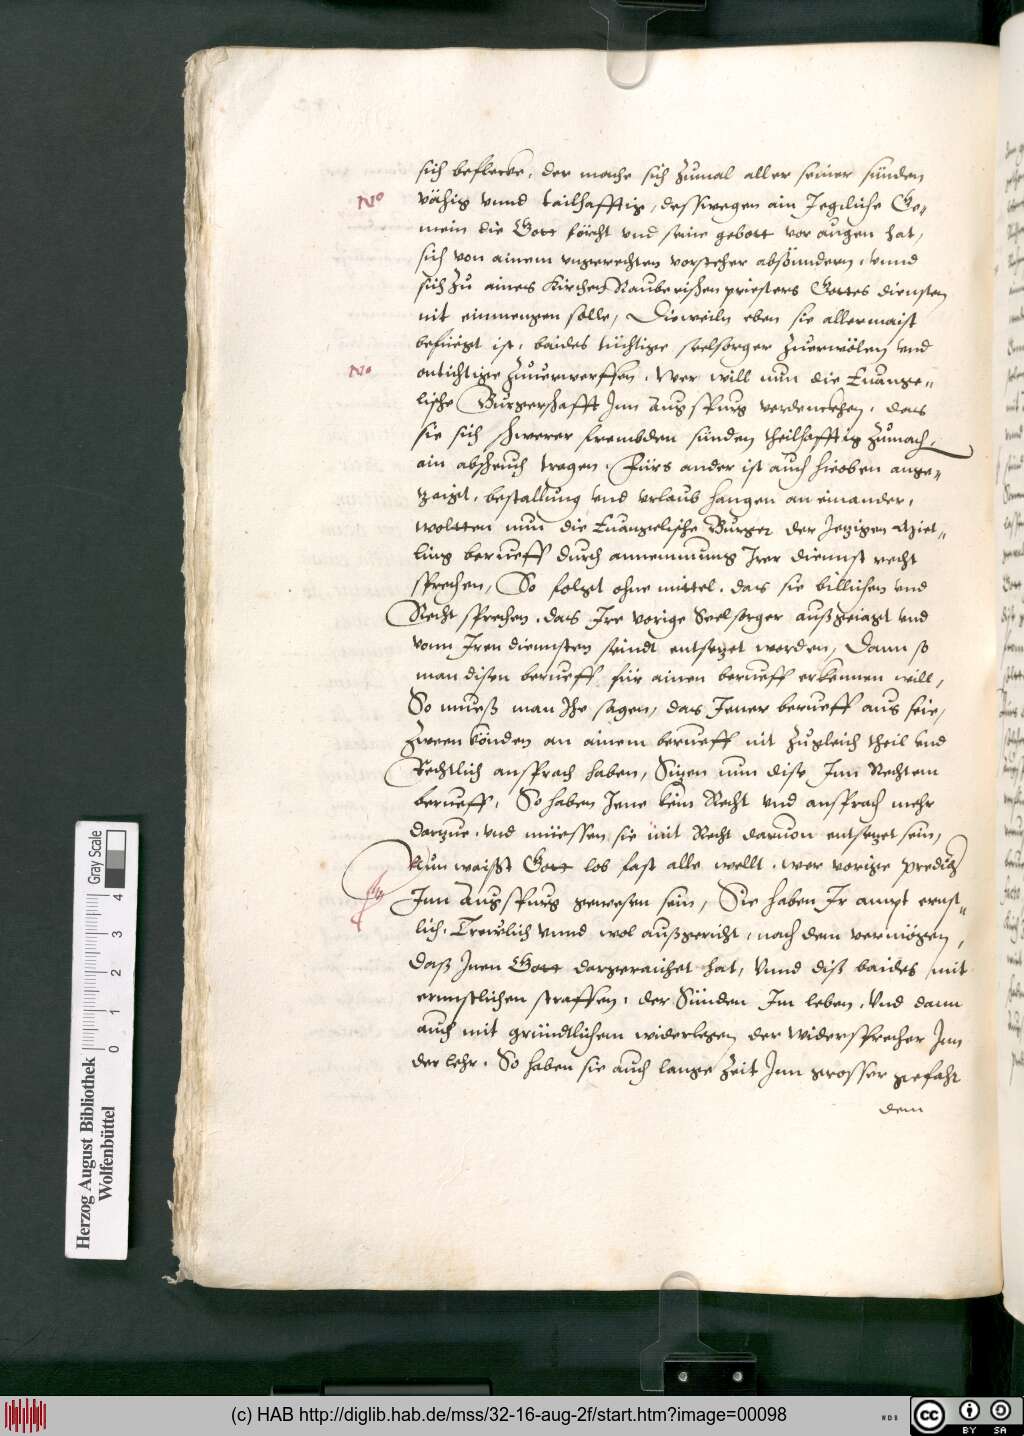 sich beflecke, der mache sich zumal aller seiner sünden
No
vähig vnnd tailhafftig, desswegen ain Jegcliche Ge-
mein die Gott förcht vnd seine gebott vor augen hat,
sich von ainem vngerechten vorsteher absönndern, vnnd
sich zu aines Kirchen Rauberischen priesters Gottes diensten
nit einmengen solle, Dieweiln eben sie allermaist
befüegt ist, baides tüchtige seelsorger zuerwölen vnd
No
vntichtige zuuerwerffen. Wer will nun die Euange-
lische Burgerschafft Jnn Augspurg verdenckhen, das
sie sich schwerer frembden sünden theilhafftig zumach,
ain abscheuch tragen. Fürs ander ist auch hieoben ange-
zaigt, bestallung vnd vrlaub hangen an einander,
wollten nun die Euangelische Burger der Jezigen Miet-
ling berueff durch annemmung Irer diennst recht
sprechen, So folgt ohne mittel, das sie billichen vnd
Recht sprechen, das Ire vorige Seelsorger außgejagt vnd
vonn Iren diennsten seindt entsezet worden, Dann so
man disen berueff für ainen berueff erkennen will,
So mueß man Jhe sagen, das Jener berueff aus seie,
Zween könden an ainem berueff nit zugleich theil vnd
Rechtlich ansprach haben, Sizen nun dise Jnn Rechtem
berueff, So haben Jene kein Recht vnd ansprach mehr
darzue, vnd müessen sie mit Recht daruon entsezet sein,
Nun waißt Gott lob fast alle wellt, wer vorige predig
Jnn Augspurg gewesen sein, Sie haben Ir ampt ernst-
lich, Trewlich vnnd wol außgericht, nach dem vermögen,
daß Inen Gott dargeraichet hat, Vnnd diß baides mit
ernnstlichen straffen, der Sünden Im leben, Vnd dann
auch mit gründtlichem widerlegen der widersprecher Jnn
der lehr. So haben sie auch lange zeit Jnn grosser gefahr
dem
Herzog August Bibliothek
Wolfenbüttel
Gray Scale
0 1 2 3 4
(c) HAB http://diglib.hab.de/mss/32-16-aug-2f/start.htm?image=00098
cc BY SA